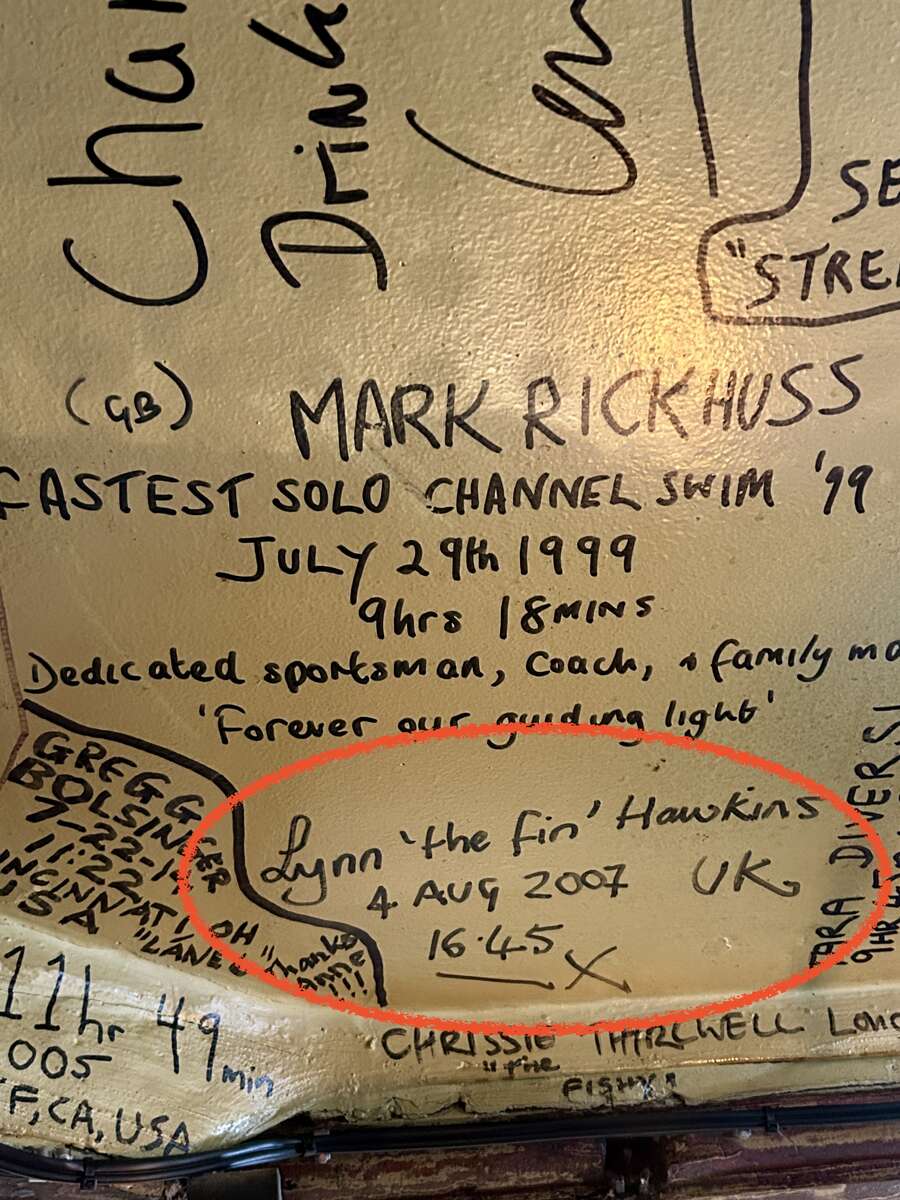 Drink
SE
"STREA
(GB) MARK RICKHUSS
FASTEST SOLO CHANNEL SWIM '99
JULY 29th 1999
9hrs 18MINS
Dedicated sportsman, coach, + family ma
'Forever our guiding light'
GREGG
BOLSINGER
11:22
CINCINNATI, OH
USA "LANE
Thanks
Anne
!!!
Lynn 'the fin' Hawkins
4 AUG 2007 UK
16.45 X
TARA DIVERSI
11hr 49min
005
F, CA, USA
CHRISSIE THIRLWELL Lond
"the
FISHY"